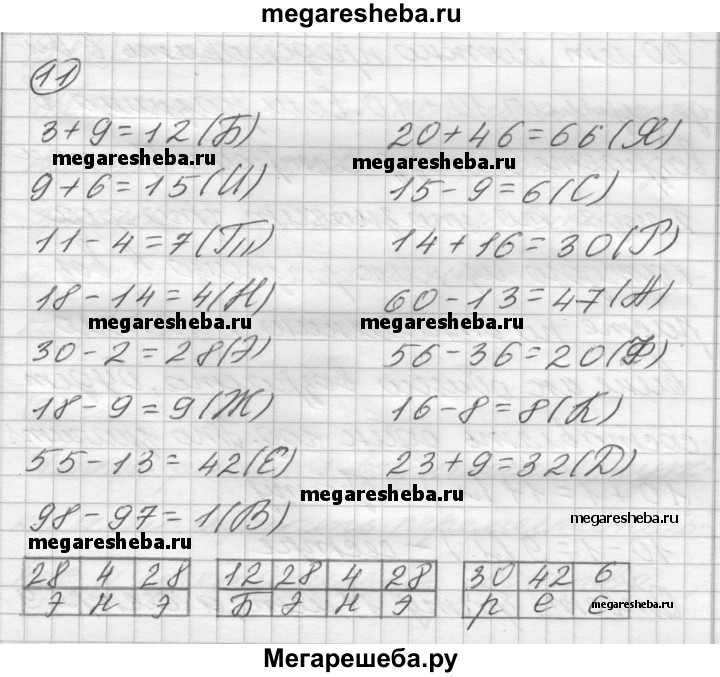 megaresheba.ru
11
3+9=12(Б) 20+46=66(Я)
megaresheba.ru megaresheba.ru
9+6=15(И) 15-9=6(С)
11-4=7(П) 14+16=30(Р)
18-14=4(Н) 60-13=47(А)
megaresheba.ru megaresheba.ru
30-2=28(Э) 56-36=20(Ф)
18-9=9(Ж) 16-8=8(К)
55-13=42(Е) 23+9=32(D)
megaresheba.ru
98-97=1(В) megaresheba.ru
megaresheba.ru
28 4 28 12 28 4 28 30 42 6
Э н э Б э н э р е с
Мегарешеба.ру